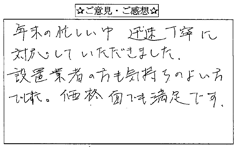 ☆ご意見・ご感想☆
年末の忙しい中 迅速丁寧に
対応していただきました。
設置業者の方も気持ちのよい方
でした。価格面でも満足です。